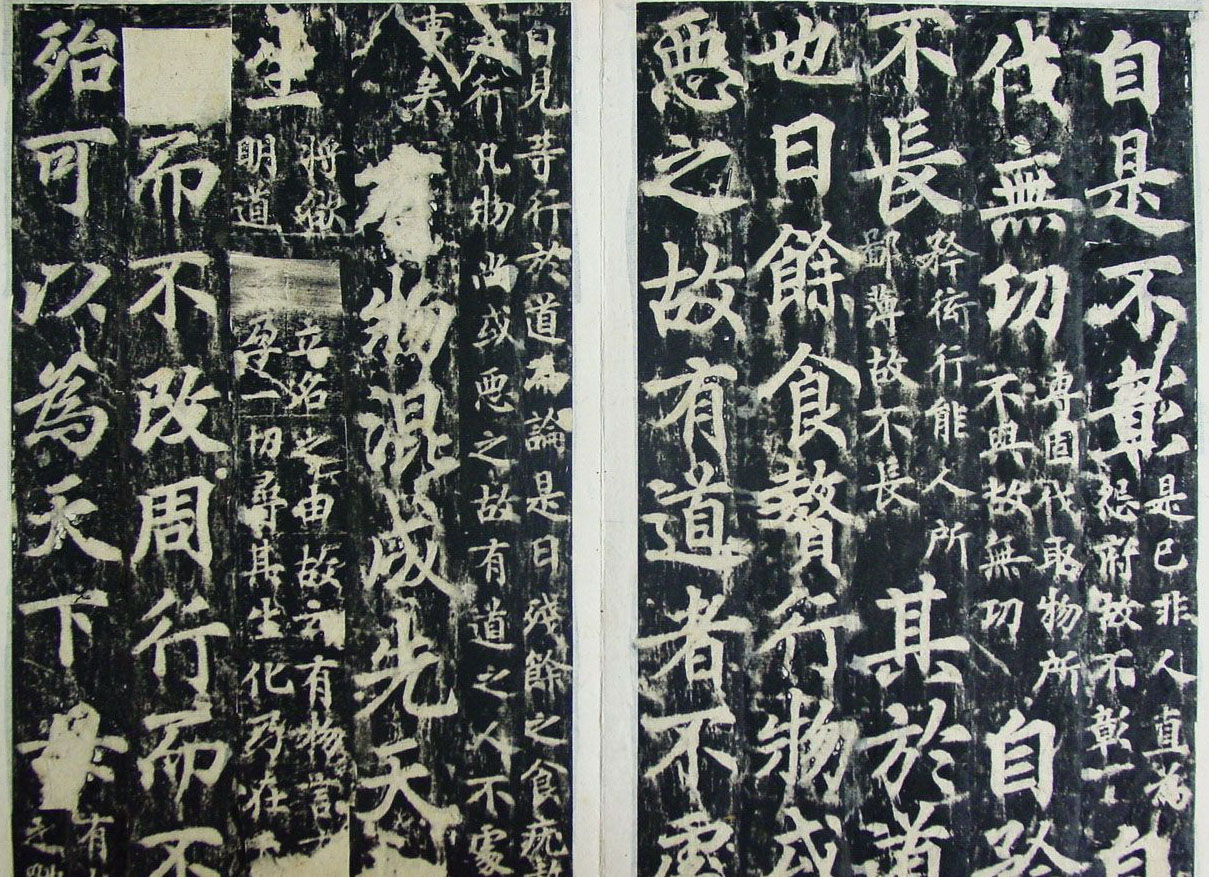 自是不彰
是已非人直為
怨府故不彰
自
伐無功
專固伐取物所
不與故無功
自矜
不長
矜衒行能人所
鄙薄故不長
其於道
也曰餘食贅行物或
惡之故有道者不處
自見等行於道為論是曰殘餘之食疣贅
之行凡物尚或惡之故有道之人不處
矣
有物混成先天
生
將欲
明道
立名之由故云有物言
孕一切尋其生化乃在
而不改周行而不
殆可以為天下母
有
之